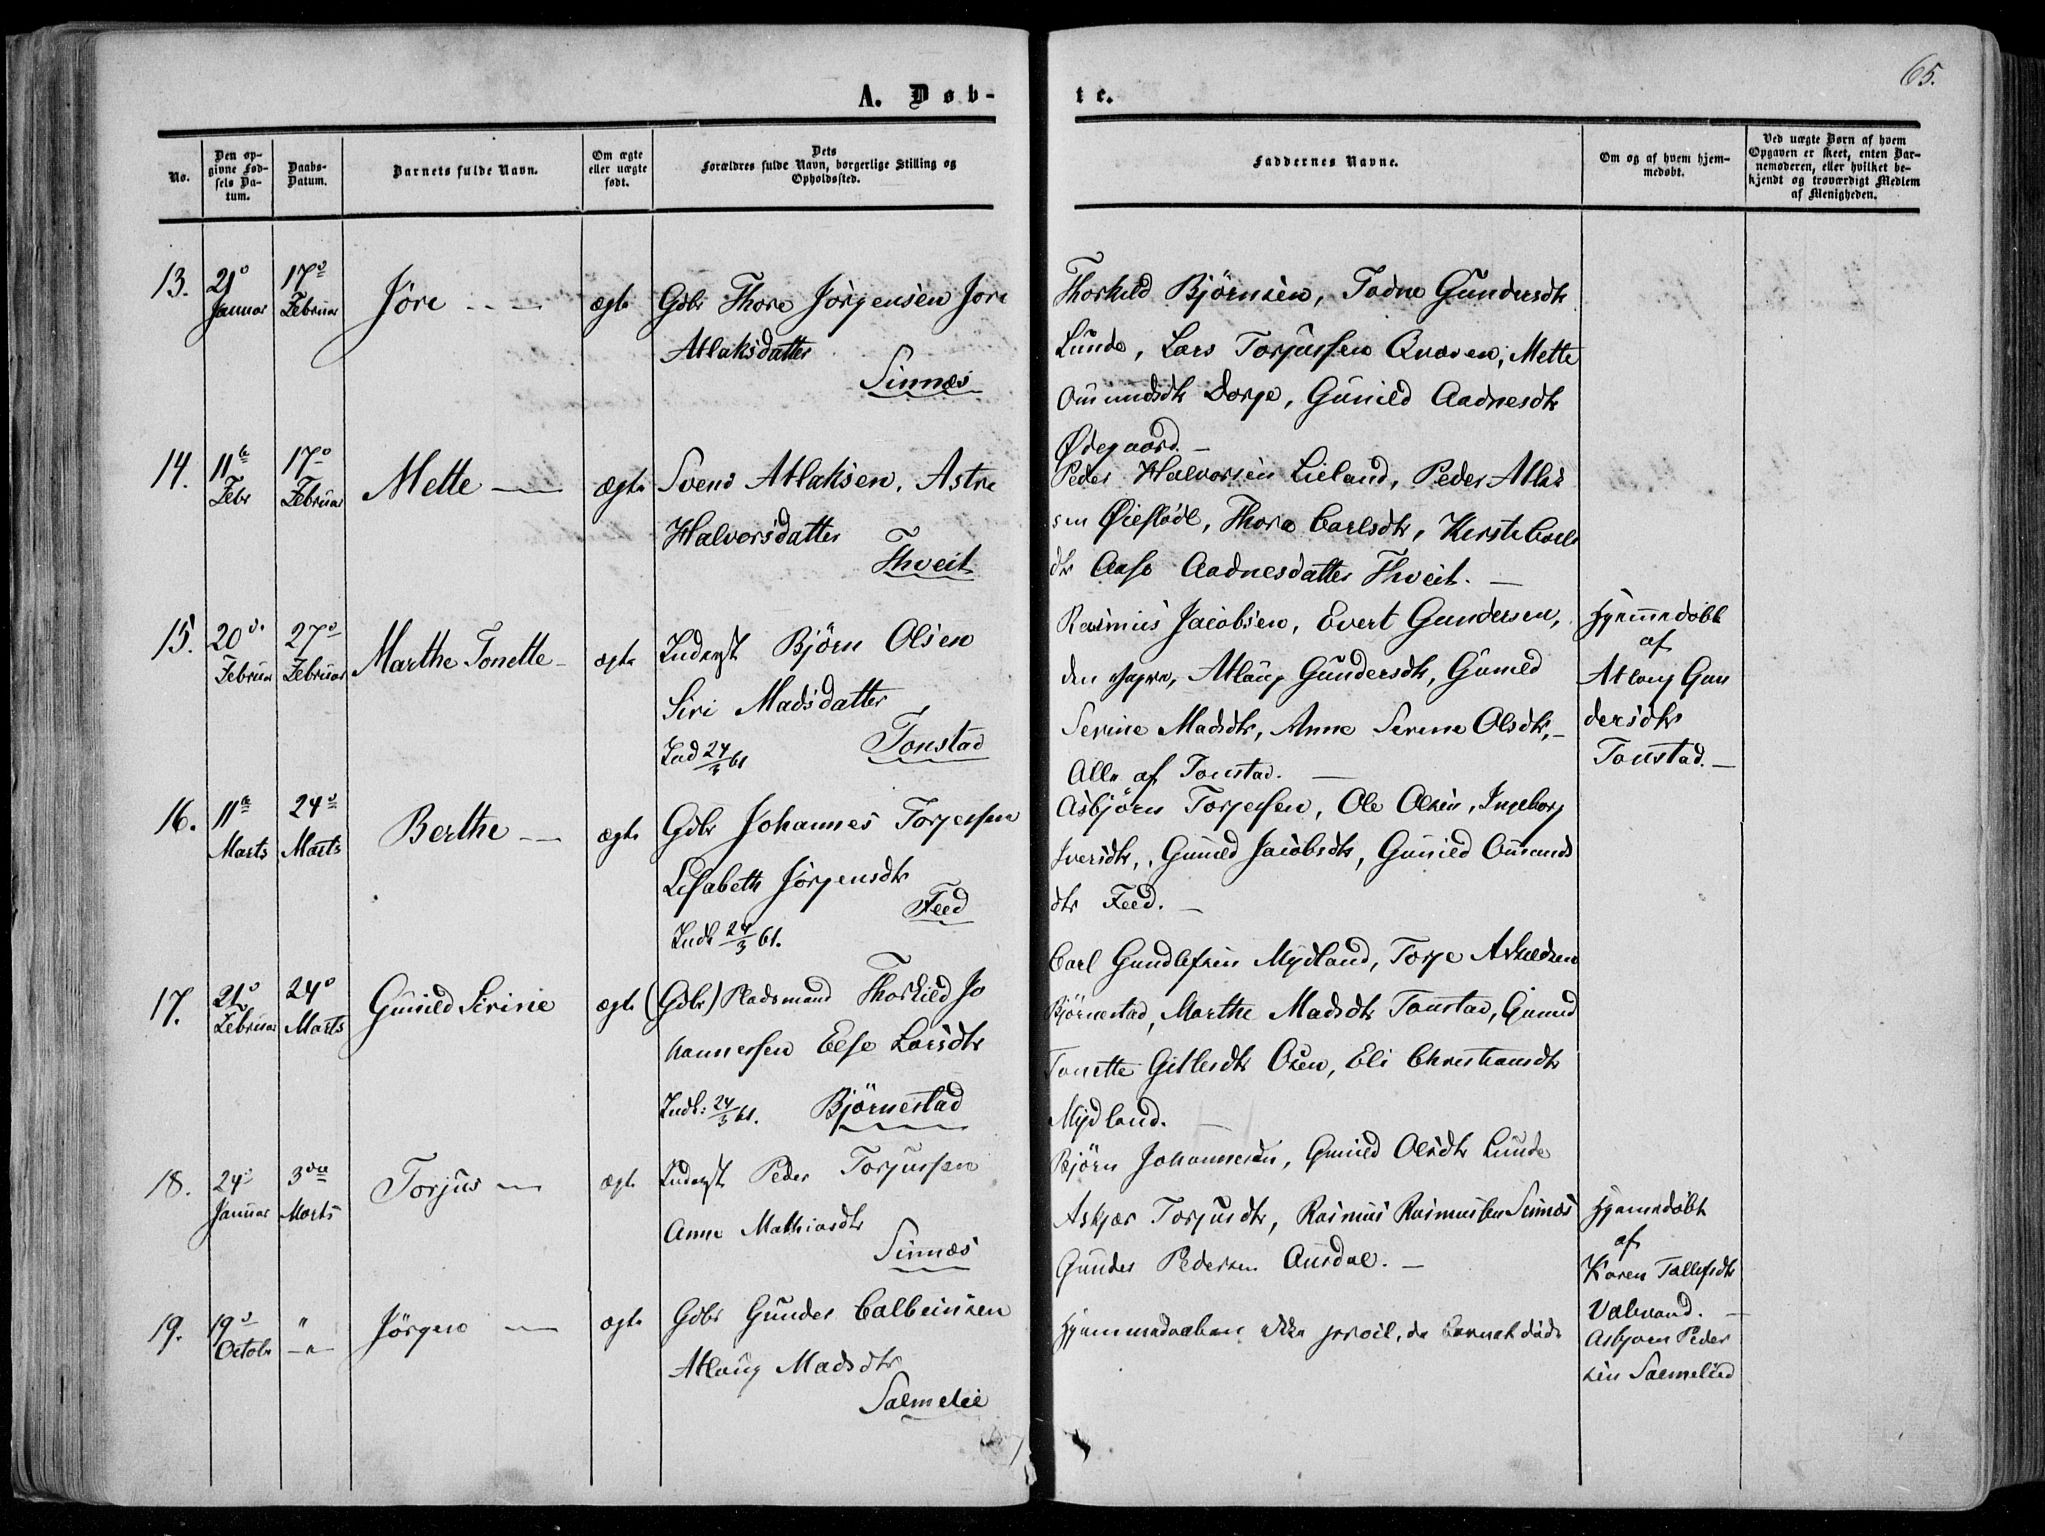 65.
A. Døb-te.
No.
Den opgivne Fødsels Datum.
Daabs-Datum.
Barnets fulde Navn.
Om ægte eller uægte født.
Dets Forældres fulde Navn, borgerlige Stilling og Opholdssted.
Faddernes Navne.
Om og af hvem hjemmedøbt.
Ved uægte Børn af hvem Opgaven er skeet, enten Barnemoderen, eller hvilket bekjendt og troværdigt Medlem af Menigheden.
13. 21 Januar 17 Februar Jöre ægte Gdbr Thore Jörgensen Jöre
Atlaksdatter
Sinnæs
Thorkild Björnsen, Todne Gundersdtr
Lunde, Lars Torjussen Qvæven, Mette
Omundsdtr Dorge, Gunild Aadnesdtr
Ødegaard.
14. 11te Febr 17 Februar Mette ægte Svend Atlaksen, Astri
Halvorsdatter
Thveit
Peder Halvorsen Lieland, Peder Atlak
sen Øieflödt, Thora Carlsdtr, Kirste Carls
dtr Aase Aadnesdatter Thveit.
15. 20 Februar 27 Februar Marthe Tonette ægte Inderst Björn Olsen
Siri Madsdatter
Ind 24/3 61 Tonstad
Rasmus Jacobsen, Evert Gundersen,
den yngre, Atlaug Gundersdtr, Gunild
Serine Madsdtr, Anne Serene Olsdtr,
Alle af Tonstad.
Hjemmedöbt
af
Atlaug Gun
dersdtr
Tonstad.
16. 11te Marts 24 Marts Berthe ægte Gdbr Johannes Torjersen
Lisabeth Jörgensdtr
Feed
Indl 24/3 61.
Asbjörn Torjersen, Ole Olsen, Ingeborg
Iversdtr, Gunild Jacobsdtr, Gunild Omunds
dtr Feed.
17. 21 Februar 24 Marts Gunild Sirine ægte (Gdbr) Pladsmand Thorkild Jo
hannessen Else Larsdtr
Indl: 24/3 61. Björnestad
Carl Gundlefsen Mydland, Torje Askeldsen
Björnestad, Marthe Madsdtr Tonstad, Gunild
Tonette Gitlesdtr Osen, Eli Christiansdtr
Mydland.
18. 24 Januar 3die Marts Torjus ægte Inderst Peder Torjussen
Anne Mathiasdtr
Sinnæs
Björn Johannesen, Gunild Olsdtr Lunde
Askjær Torjusdtr, Rasmus Rasmussen Sinnæs
Gunder Pedersen Ousdal.
Hjemmedöbt
af
Karen Tallefsdtr
19. 19 Octob " Jörgen ægte Gdbr Gunder Calbeinsen
Atlaug Madsdtr
Salmelie
Hjemmedaaben ikke prøvet, da Barnet döde
Asbjorn Peder
sen Salmelied